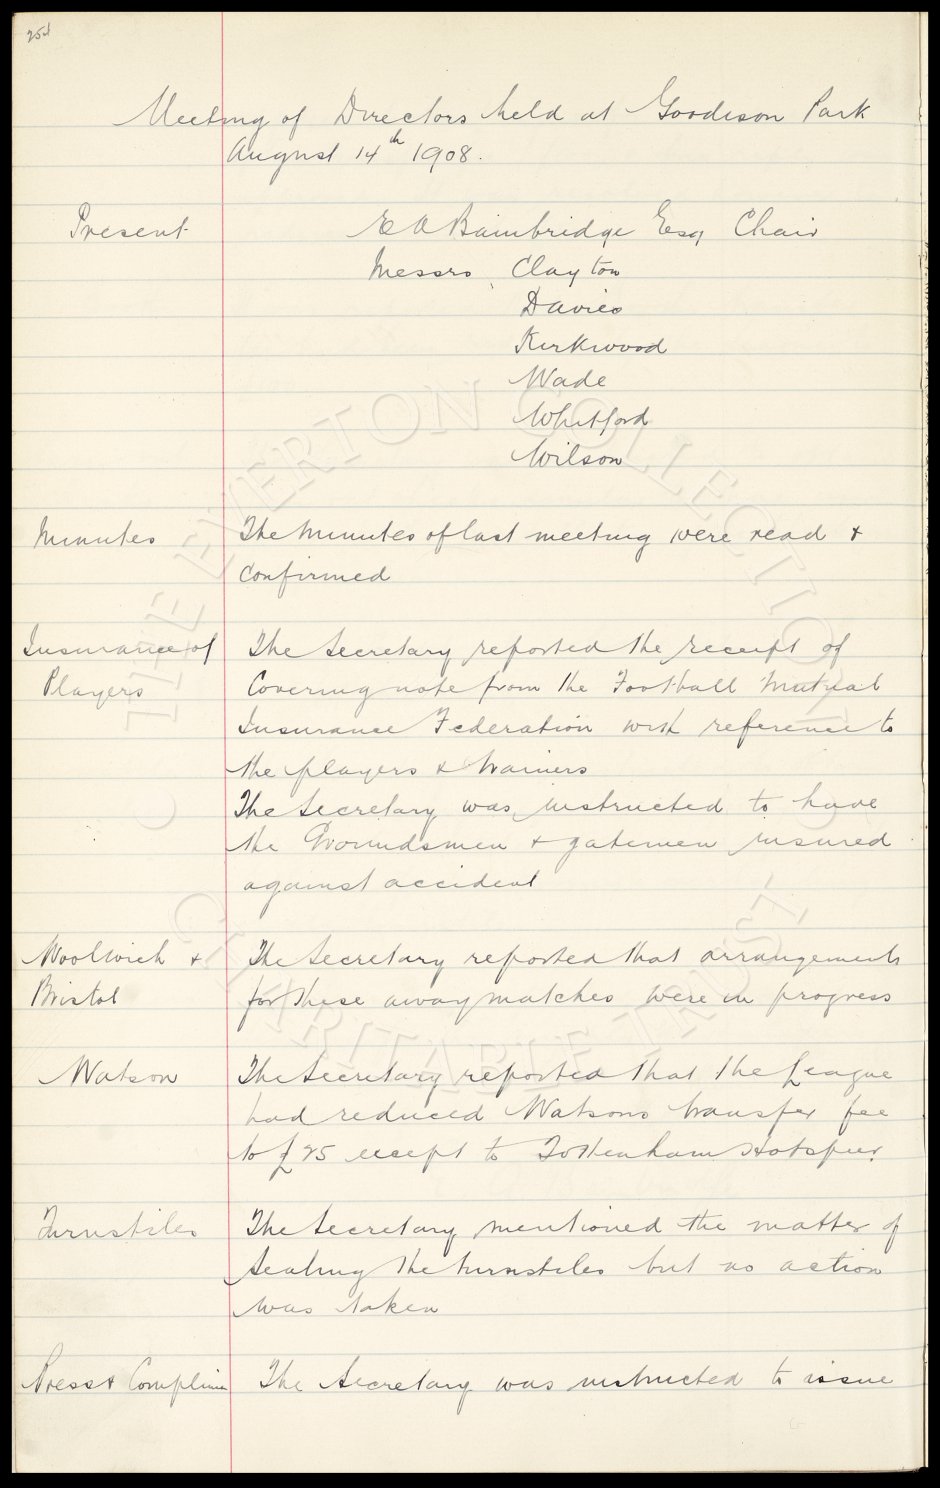 254
Meeting of Directors held at Goodison Park
August 14th 1908.
Present E A Bainbridge Esq Chair
Messrs Clayton
Davies
Kirkwood
Wade
Whitford
Wilson
Minutes The Minutes of last meeting were read &
confirmed
Insurance of The Secretary reported the receipt of
Players Covering note from the Football Mutual
Insurance Federation with reference to
the players & trainers
The Secretary was instructed to have
the Groundsmen & gatemen insured
against accident
Woolwich & The Secretary reported that arrangements
Bristol for these away matches were in progress
Watson The Secretary reported that the League
had reduced Watsons transfer fee
to £25 except to Tottenham Hotspur.
Turnstiles The Secretary mentioned the matter of
Sealing the turnstiles but no action
was taken
Press & The Secretary was instructed to issue
THE EVERTON COLLECTION
CHARITABLE TRUST